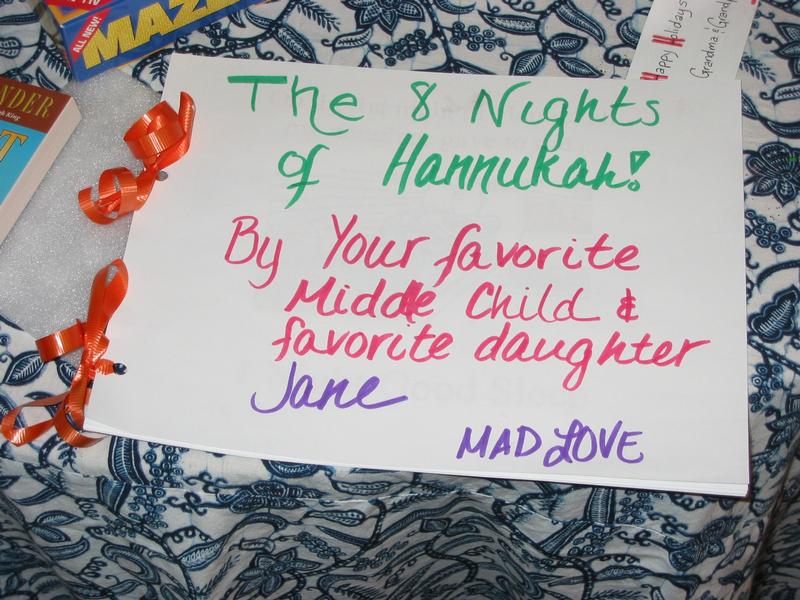 ALL NEW!
MAZE
NDER
Happy Holidays
Grandma & Grand
The 8 Nights
of Hannukah!
By Your favorite
Middle Child &
favorite daughter
Jane
MAD LOVE